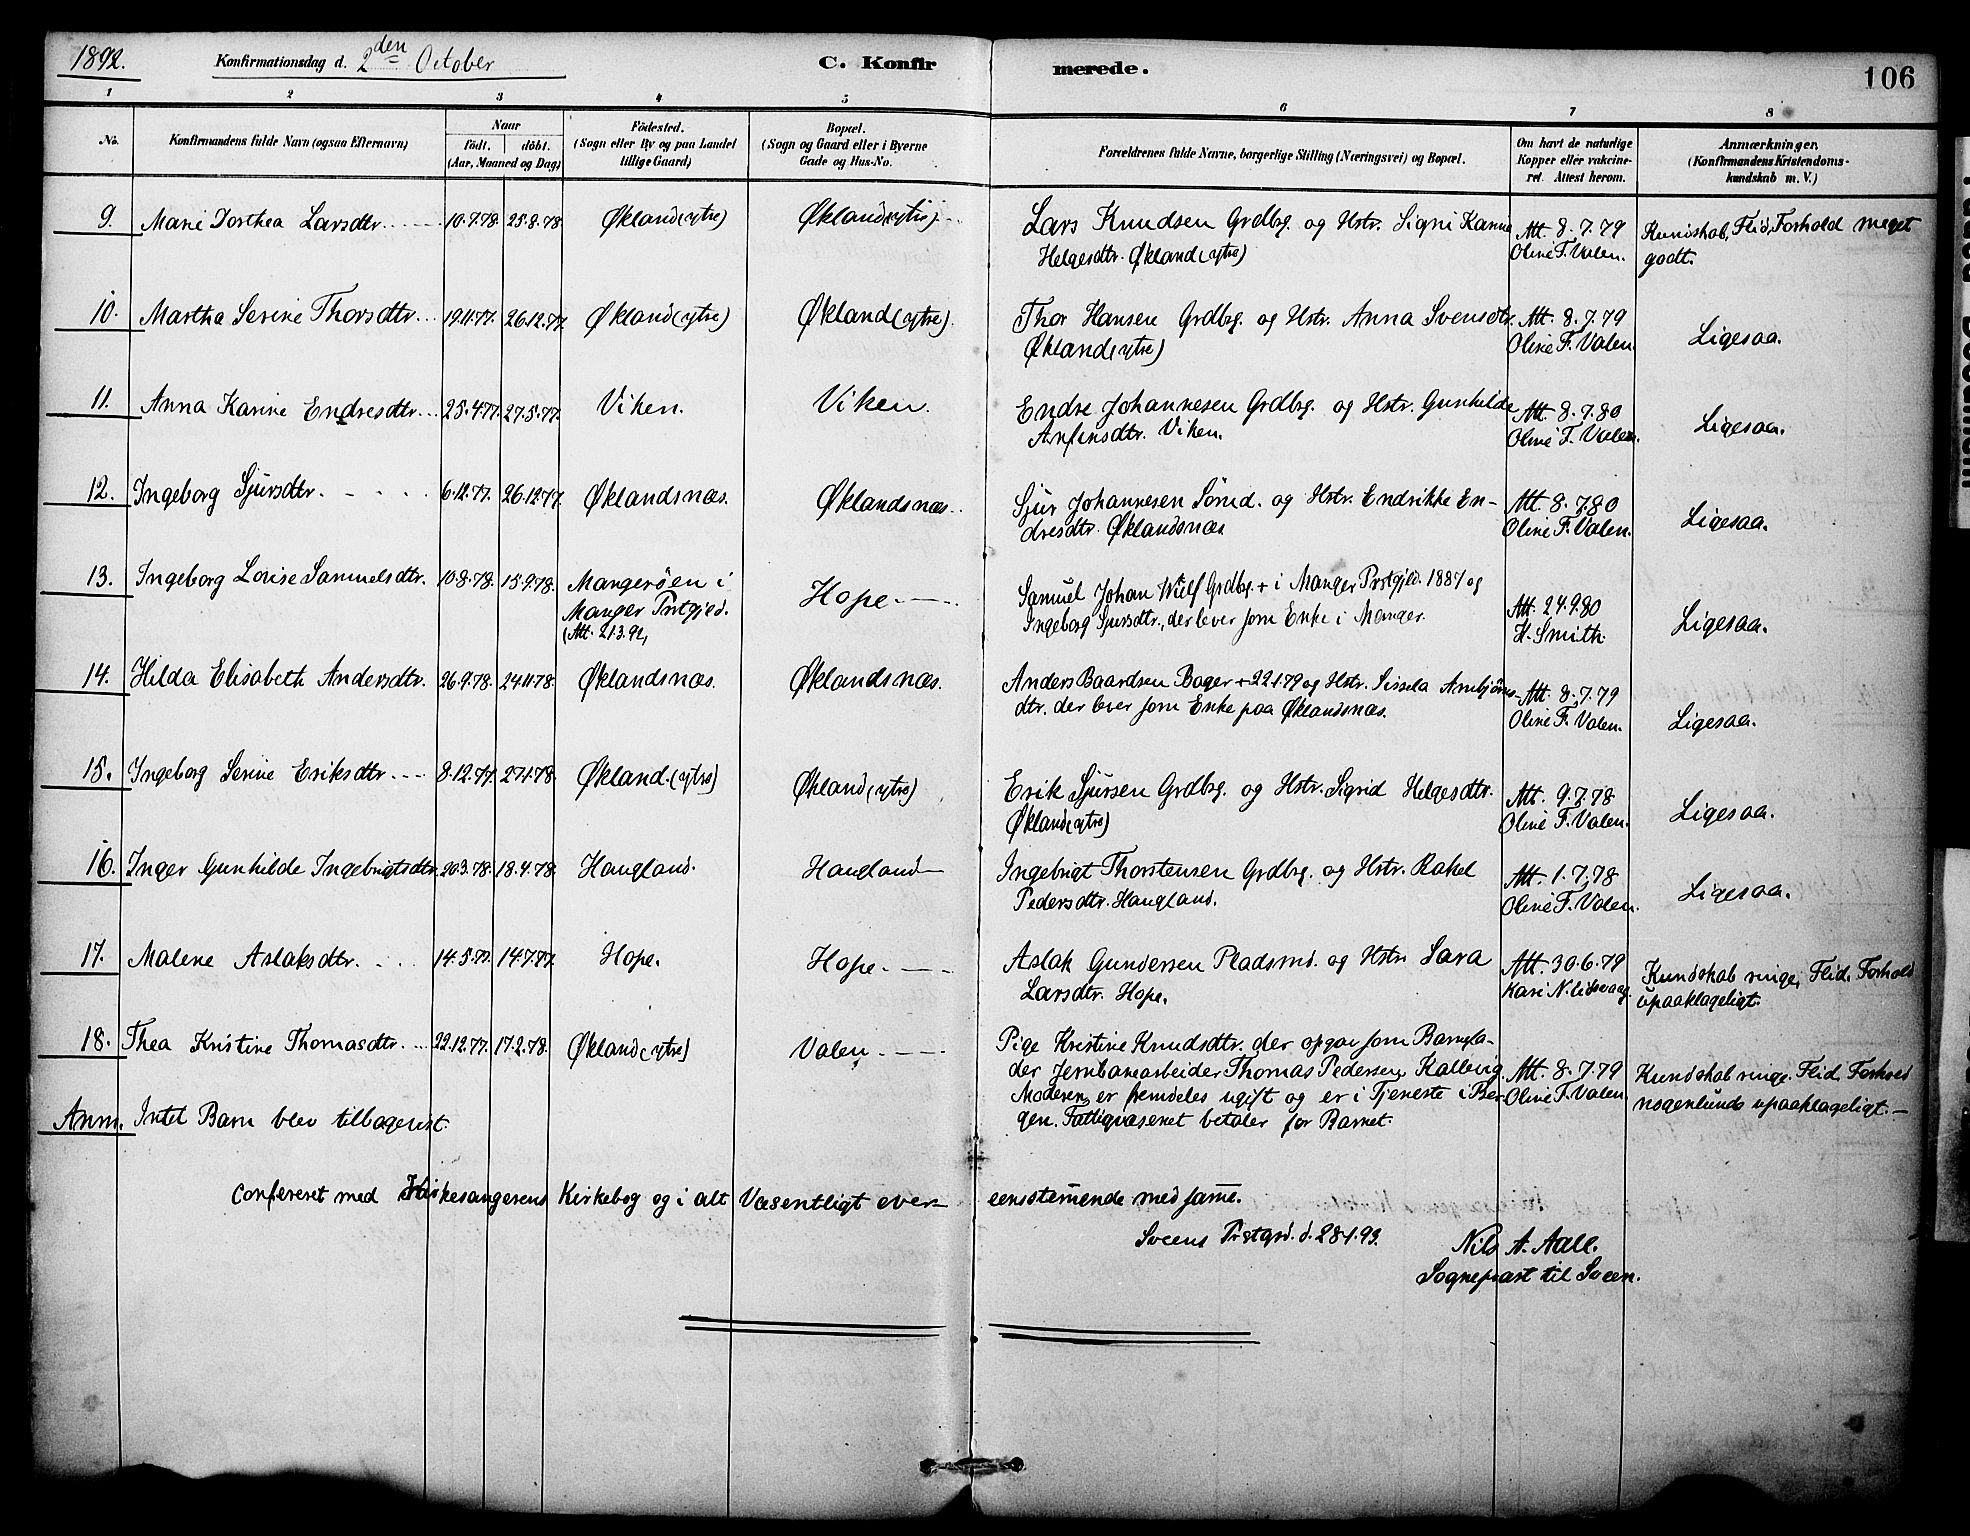 1892. Konfirmationsdag d. 2den October C. Konfirmerede. 106
1 2 3 4 5 6 7 8
No. Konfirmandens fulde Navn (ogsaa Efternavn) Naar födt. döbt. (Aar, Maaned og Dag) Födested. (Sogn eller By og paa Landet tillige Gaard) Bopæl. (Sogn og Gaard eller i Byerne Gade og Hus-No. Forældrenes fulde Navne, borgerlige Stilling (Næringsvei) og Bopæl. Om havt de naturlige Kopper eller vakcineret. Attest herom. Anmærkninger. (Konfirmandens Kristendomskundskab m. V.)
9. Marie Dorthea Larsdtr. 10.7.78. 25.8.78. Økland (ytre) Økland (ytre) Lars Knudsen Grdbrg. og Hstr. Signi Karine Att. 8.7.79 Kundskab, Flid, Forhold meget
Helgesdtr. Økland (ytre) Oline F. Valen. godt.
10. Martha Serine Thorsdtr. 19.11.77. 26.12.77. Økland (ytre) Økland (ytre). Thor Hansen Grdbrg. og Hstr. Anna Svensdtr. Att. 8.7.79 Ligesaa.
Økland (ytre) Oline F. Valen.
11. Anna Karine Endresdtr. 25.4.77. 27.5.77. Viken. Viken. Endre Johannesen Grdbrg. og Hstr. Gunhilde Att. 8.7.80 Ligesaa.
Anfinsdtr. Viken. Oline F. Valen.
12. Ingeborg Sjursdtr. 6.12.77. 26.12.77. Øklandsnæs. Øklandsnæs. Sjur Johannesen Strmd. og Hstr. Endrikke En- Att. 8.7.80 Ligesaa.
dresdtr. Øklandsnæs Oline F. Valen.
13. Ingeborg Lovise Samuelsdtr. 10.8.78. 15.9.78. Mangerøen i Hope. Samuel Johan Wulf Grdbrg. + i Manger Prstgjeld. 1887 og Att. 24.9.80 Ligesaa.
Manger Prstgjeld. Ingeborg Sjursdtr., der lever som Enke i Manger. H. Smith.
(Att. 21.3.92)
14. Hilda Elisabeth Andersdtr. 26.9.78. 24.11.78. Øklandsnæs. Øklandsnæs. Anders Baardsen Bager + 22.1.79 og Hstr. Sissela Arnbjørns- Att. 8.7.79 Ligesaa.
dtr. der lever som Enke paa Øklandsnæs. Oline F. Valen.
15. Ingeborg Serine Eriksdtr. 8.12.77. 27.1.78. Økland. (ytre) Økland (ytre) Erik Sjursen Grdbrg. og Hstr. Sigrid Helgesdtr. Att. 9.7.78 Ligesaa.
Økland (ytre) Oline F. Valen.
16. Inger Gunhilde Ingebrigtsdtr. 20.3.78. 18.4.78. Haugland. Haugland Ingebrigt Thorstensen Grdbrg. og Hstr. Rakel Att. 1.7.78 Ligesaa.
Pedersdtr. Haugland. Oline F. Valen.
17. Malene Aslaksdtr. 14.5.77. 14.7.77. Hope. Hope. Aslak Gundersen Pladsmd. og Hstr. Sara Att. 30.6.79 Kundskab ringe, Flid, Forhold
Larsdtr. Hope. Kari N. upaaklageligt.
18. Thea Kristine Thomasdtr. 22.12.77. 17.2.78. Økland (ytre) Valen. Pige Kristine Knudsdtr. der opgav som Barnefa-
der Jernbanearbeider Thomas Pedersen Kallevig. Att. 8.7.79 Kundskab ringe. Flid, Forhold
Moderen er fremdeles ugift og er i Tjeneste i Ber- Oline F. Valen. nogenlunde upaaklageligt.
gen. Fattigvæsenet betaler for Barnet.
Anm. Intet Barn blev tilbagevist.
Confereret med Kirkesangerens Kirkebog og i alt Væsentligt over- eensstemende med same.
Sveens Prstgrd. d. 28.1.93. Nils A. Aall.
Sogneprest til Sveen.